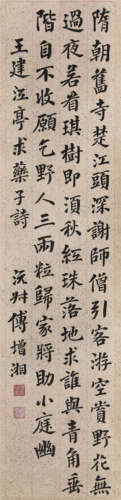 隋朝舊寺楚江頭深謝師僧引客遊空賞野花無
過夜若看琪樹即須秋紅珠落地求誰與青角垂
階自不收願乞野人三兩粒歸家將助小庭幽
王建江亭求藥子詩
沅叔傅增湘